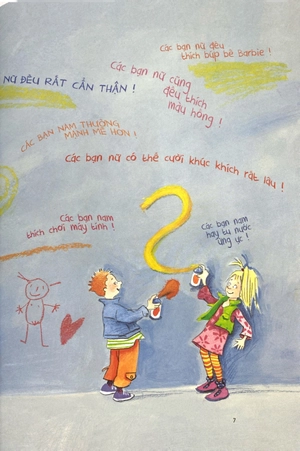 Các bạn nữ đều
thích búp bê Barbie !
Các bạn nữ cũng
đều thích
màu hồng !
NỮ ĐỀU RẤT CẨN THẬN !
CÁC BẠN NAM THƯỜNG
MẠNH MẼ HƠN !
Các bạn nữ có thể cười khúc khích rất lâu !
Các bạn nam
thích chơi máy tính !
Các bạn nam
hay tu nước
ừng ực !
7